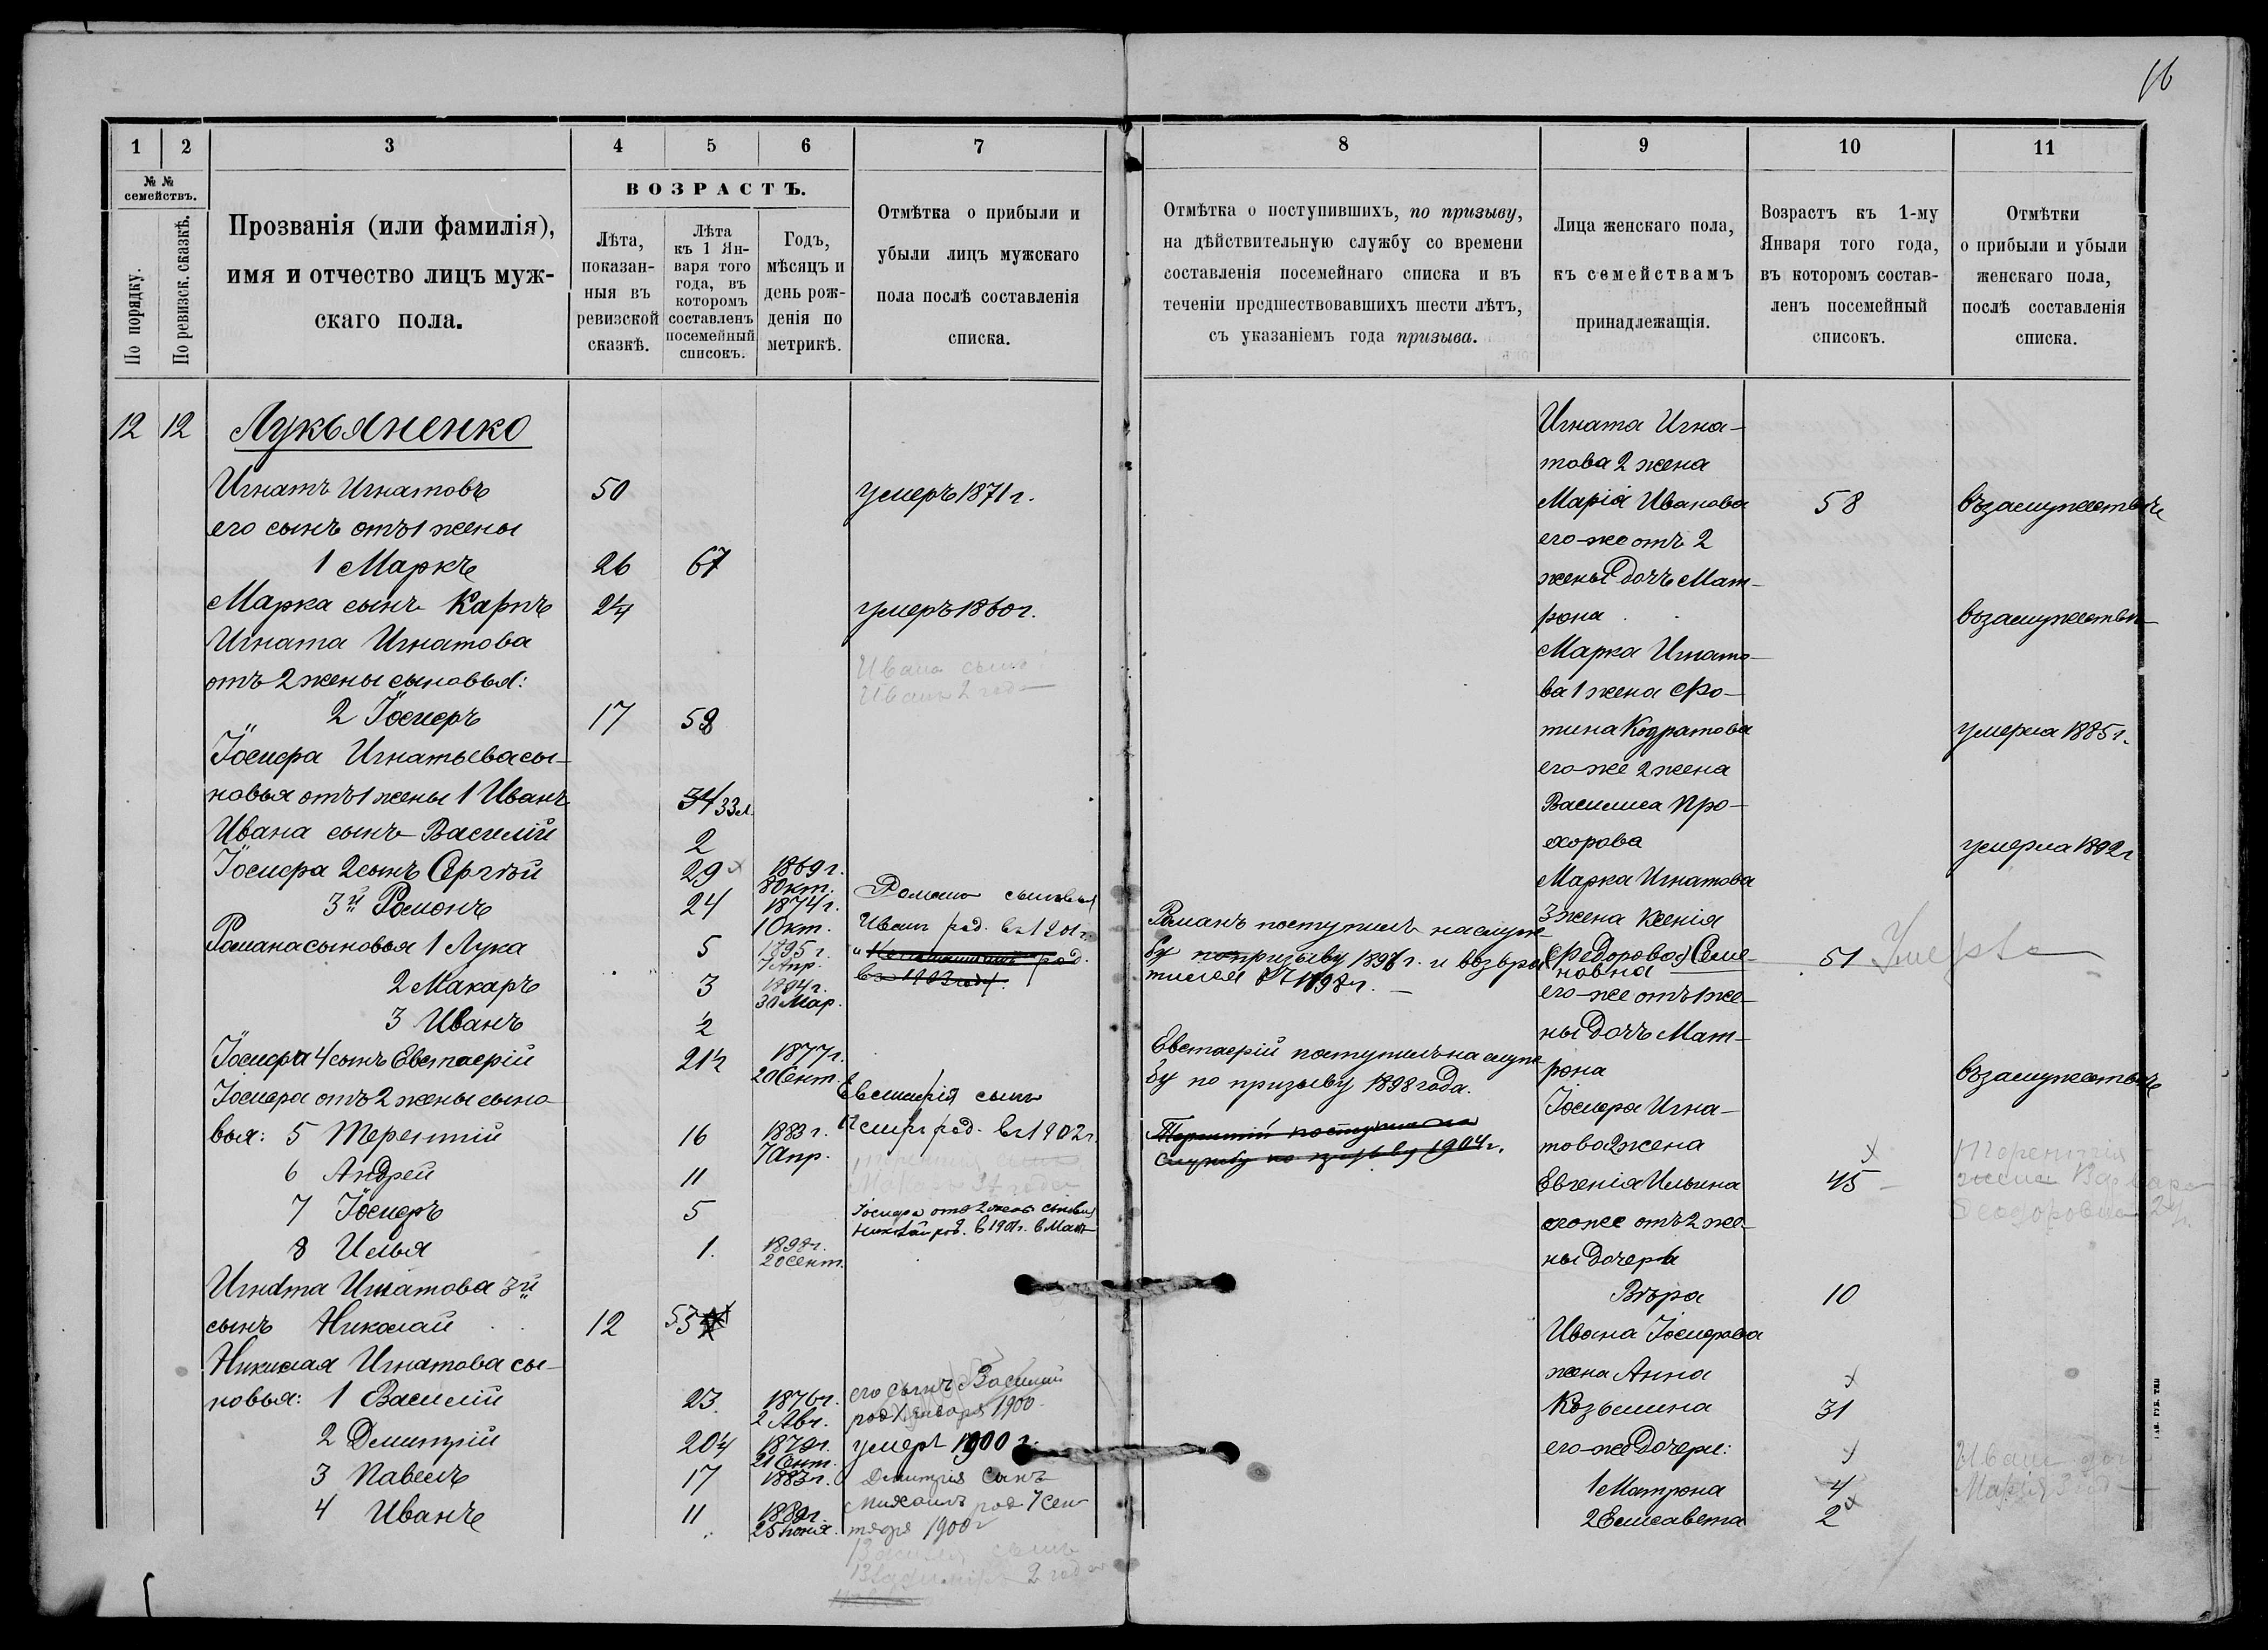 16
1 2 3 4 5 6 7
№ №
семействъ.
По порядку.
По ревизск. сказкѣ.
Прозванія (или фамилія),
имя и отчество лицъ муж-
скаго пола.
ВОЗРАСТЪ.
Лѣта,
показан-
ныя въ
ревизской
сказкѣ.
Лѣта
къ 1 Ян-
варя того
года, въ
которомъ
составленъ
посемейный
списокъ.
Годъ,
мѣсяцъ и
день рож-
денія по
метрикѣ.
Отмѣтка о прибыли и
убыли лицъ мужскаго
пола послѣ составленія
списка.
12 12 Лукьяненко
Игнатъ Игнатовъ 50 умеръ 1871 г.
его сынъ отъ 1 жены
1 Маркъ 26 67
Марка сынъ Карпъ 24 умеръ 1860 г.
Игната Игнатова
отъ 2 жены сыновья:
Ивана сынъ
Иванъ 2 года
2 Іосифъ 17 58
Іосифа Игнатьева сы-
новья отъ 1 жены 1 Иванъ 34 33 л.
Ивана сынъ Василій 2
Іосифа 2 сынъ Сергѣй 29 1869 г.
8 Окт.
3й Романъ 24 1874 г.
1 Окт.
Романа сыновья
Иванъ род. въ 1901 г.
Романа сыновья 1 Лука 5 1895 г.
7 Апр.
и род.
въ 1902 году.
2 Макаръ 3 1894 г.
30 Мар.
3 Иванъ 1/2
Іосифа 4 сынъ Евстафій 21 1/2 1877 г.
20 Сент.
Іосифа отъ 2 жены сыно-
Евстафія сынъ
вья: 5 Терентій 16 1883 г.
7 Апр.
Петръ род. въ 1902 г.
6 Андрей 11
Терентія сынъ
Макаръ
7 Іосифъ 5
Іосифа отъ 2 жены сыновья
Николай род. въ 1901 г. 6 Мая
8 Илья 1. 1898 г.
20 Сент.
Игната Игнатова 3й
сынъ Николай 12 53
Николая Игнатова сы-
новья: 1 Василій 23 1876 г.
2 Авг.
его сынъ Василій
род. 1 января 1900
2 Дмитрій 20 1/4 1879 г.
21 Сент.
умеръ 1900 г.
3 Павелъ 17 1883 г.
Дмитрія сынъ
Михаилъ род 7 сен-
4 Иванъ 11 1889 г.
25 Іюня.
тября 1900 г
Василія сынъ
Владиміръ 2 года
8 9 10 11
Отмѣтка о поступившихъ, по призыву,
на дѣйствительную службу со времени
составленія посемейнаго списка и въ
теченіи предшествовавшихъ шести лѣтъ,
съ указаніемъ года призыва.
Лица женскаго пола,
къ семействамъ
принадлежащія.
Возрастъ къ 1-му
Января того года,
въ которомъ состав-
ленъ посемейный
списокъ.
Отмѣтки
о прибыли и убыли
женскаго пола,
послѣ составленія
списка.
Игната Игна-
това 2 жена
Марія Иванова 58 въ замужествѣ
его-же отъ 2
жены дочь Мат-
рона въ замужествѣ
Марка Игнато-
ва 1 жена Фо-
тина Кодратова умерла 1885 г.
его же 2 жена
Василиса Про-
хорова умерла 1892 г
Марка Игнатова
3 жена Ксенія
(Федорова) Семе-
новна 51 Умерла
Романъ поступилъ на служ-
бу по призыву 1896 г. и возвра-
тился 1898 г.
его-же отъ 1 же-
ны дочь Мат-
рона въ замужествѣ
Евстафій поступилъ на служ-
бу по призыву 1898 года.
Терентій поступилъ на
службу по призыву 1904 г.
Іосифа Игна-
това 2 жена
Евгенія Ильина 45
Терентія
жена Варвара
Феодоровна 2
его же отъ 2 же-
ны дочерь
Вѣра 10
Ивана Іосифова
жена Анна
Козьмина 31
его-же дочери:
1 Матрона 4
Ивана дочь
Марія 3 года
2 Елисавета 2